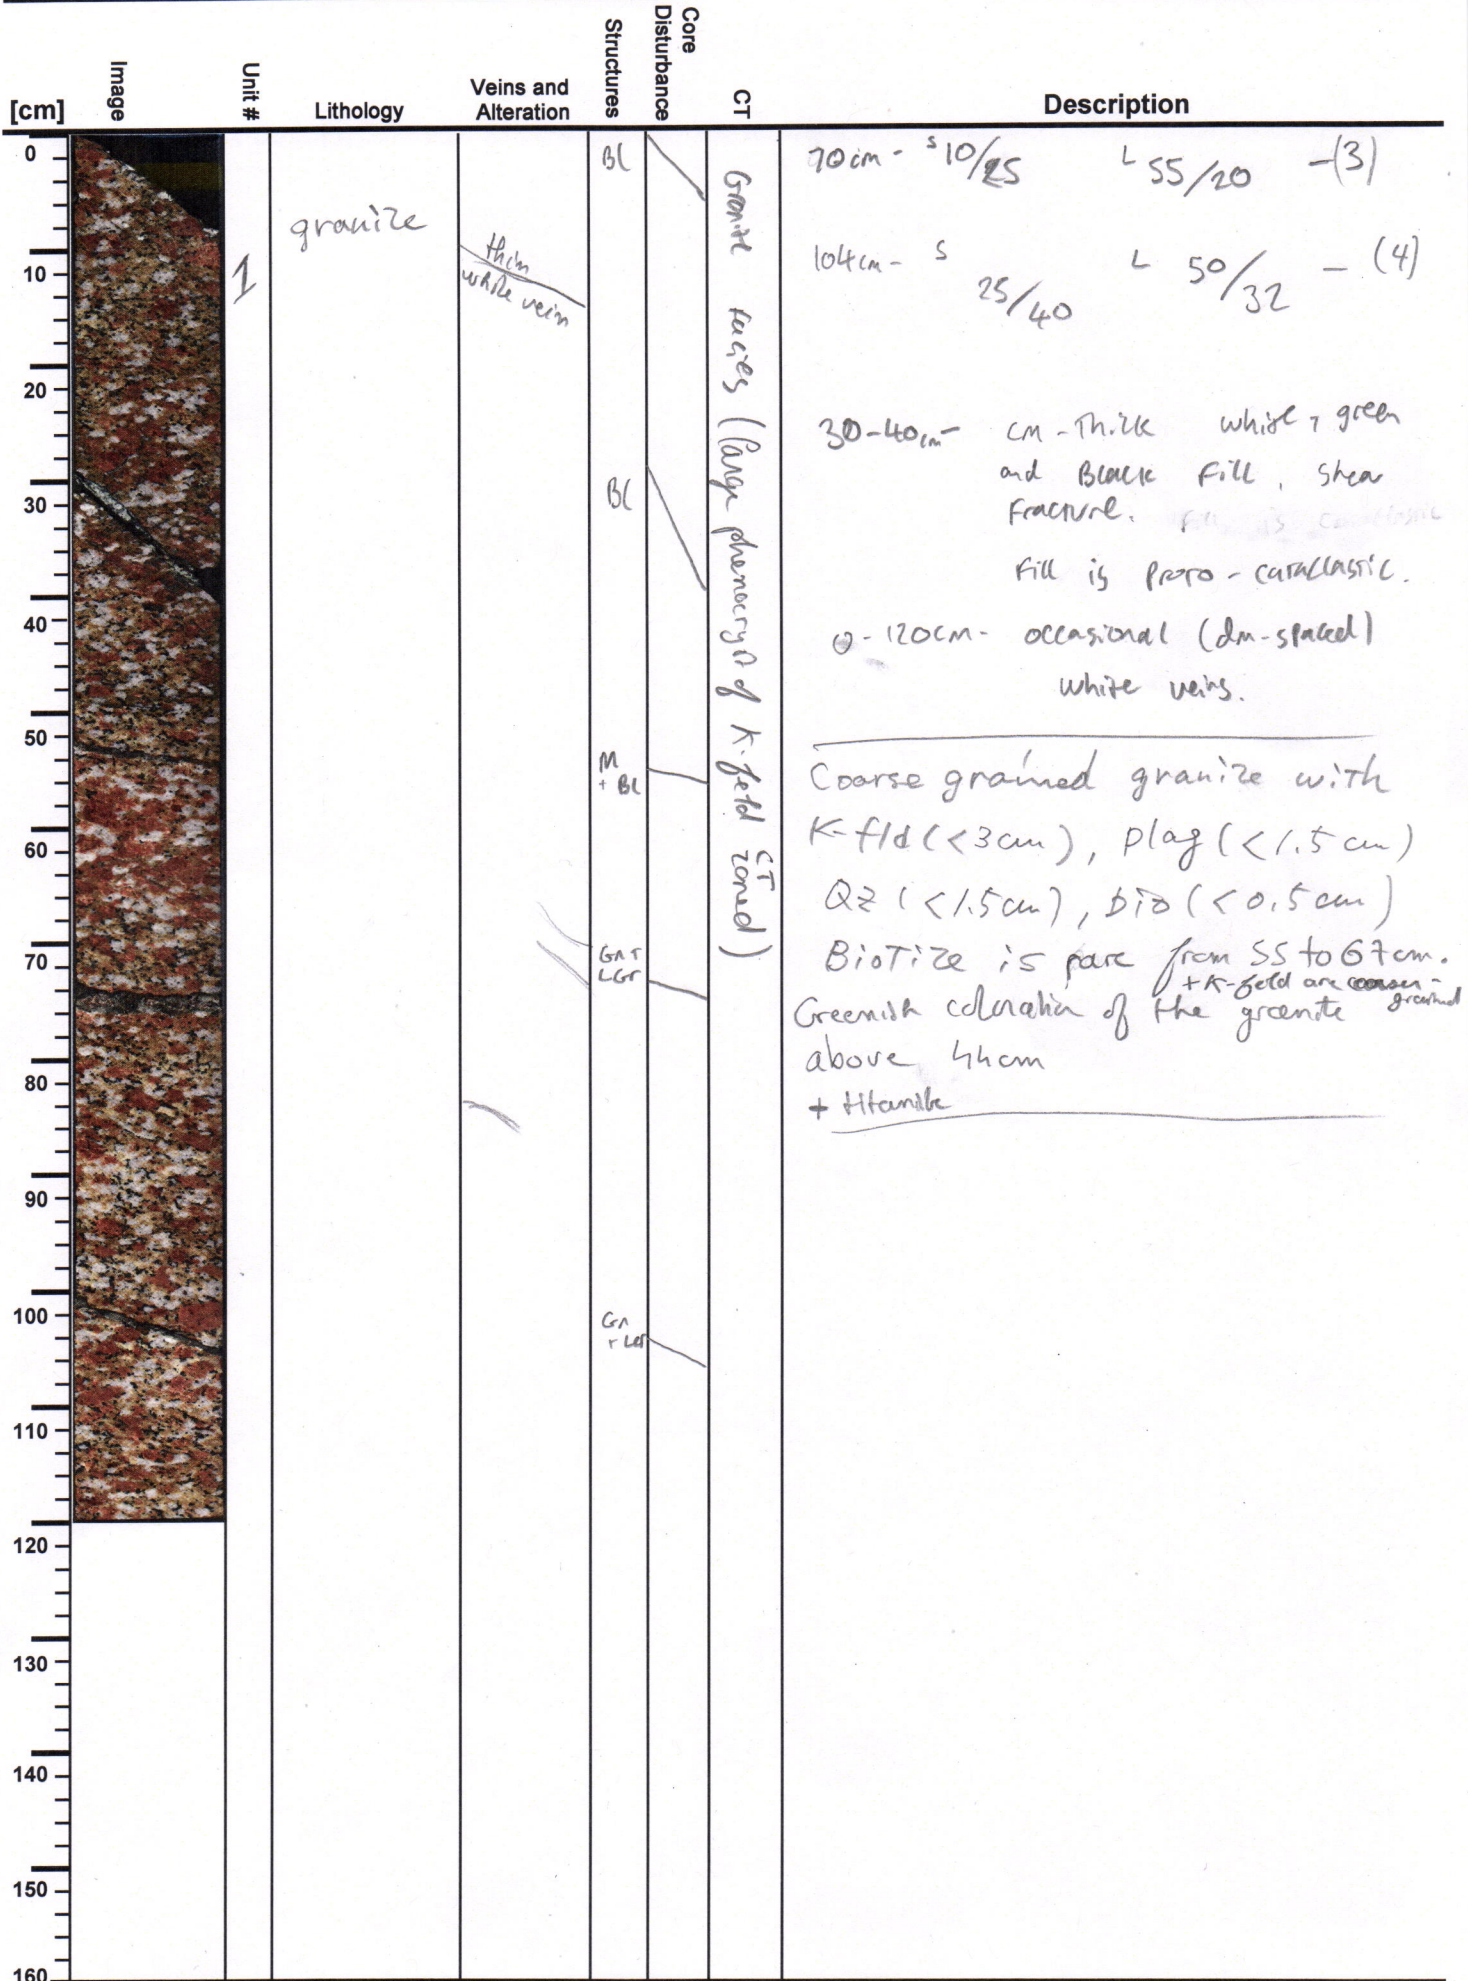 [cm]
Image
Unit #
Lithology
Veins and
Alteration
Structures
Core
Disturbance
CT
Description
0
10
20
30
40
50
60
70
80
90
100
110
120
130
140
150
160
1
granite
thin
white vein
BC
BC
M
+ BC
Gn +
LGr
Gn
+ LGr
Granite facies (large phenocryst of K-feld CT zoned)
70cm - S 10/25 L 55/20 -(3)
104cm - S 25/40 L 50/32 - (4)
30-40cm - cm-thick white, green
and Black fill, shear
fracture.
Fill is proto-cataclastic.
0-120cm - occasional (dm-spaced)
white veins.
Coarse grained granite with
K-fld (<3cm), plag (<1.5cm)
QZ (<1.5cm), bio (<0.5cm)
Biotite is rare from 55 to 67cm.
+ K-feld are coarser-grained
Greenish coloration of the granite
above 44cm
+ titanite